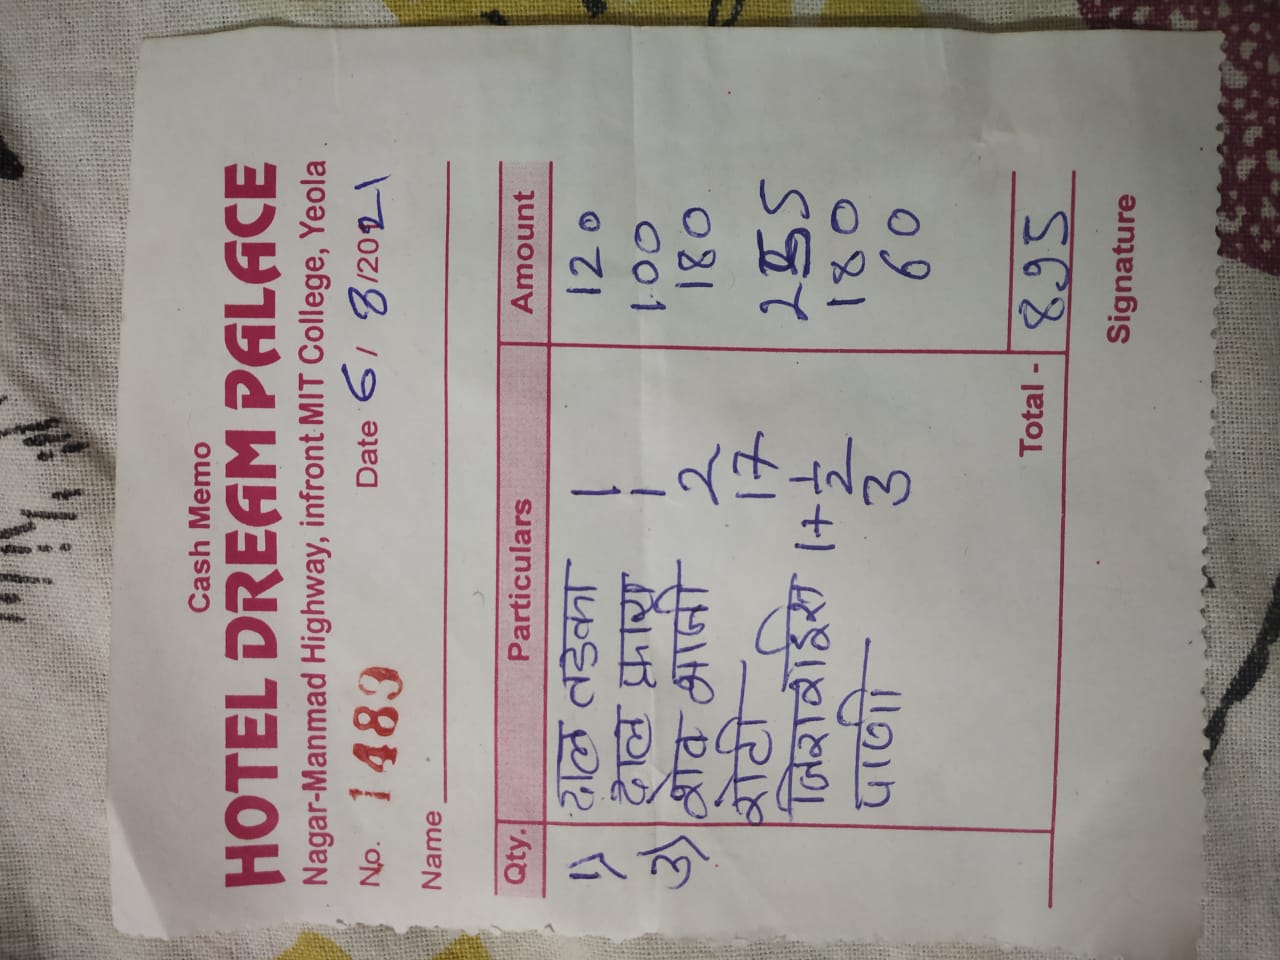 Cash Memo
HOTEL DREAM PALACE
Nagar-Manmad Highway, infront MIT College, Yeola
No. 1483 Date 6/8/2021
Name
Qty. Particulars Amount
1) दाल तडका 1 120
दाल फ्राय 1 100
3) शेव भाजी 2 180
रोटी 17 255
जिरा राईस 1+1/2 180
पाणी 3 60
Total - 895
Signature